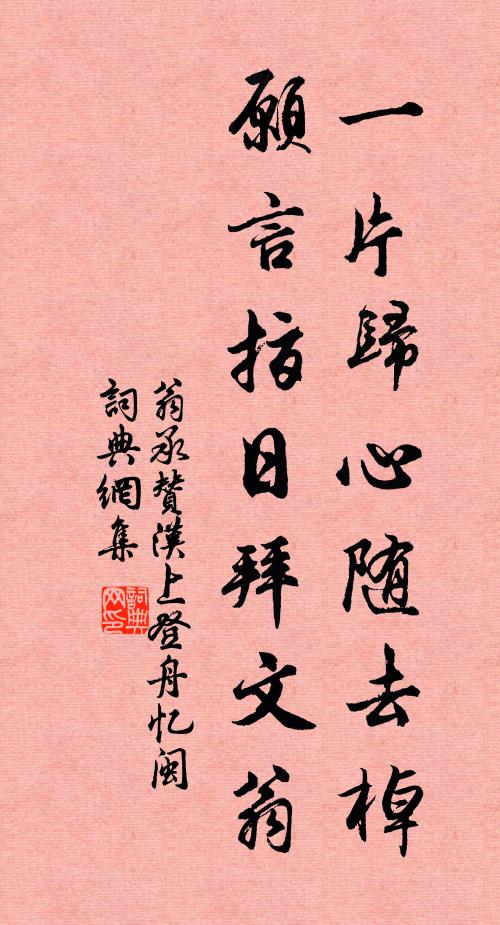 一片歸心随去棹
願言指日拜文翁
翁承贊漢上登舟忆閩
詞典網集
詞典网印